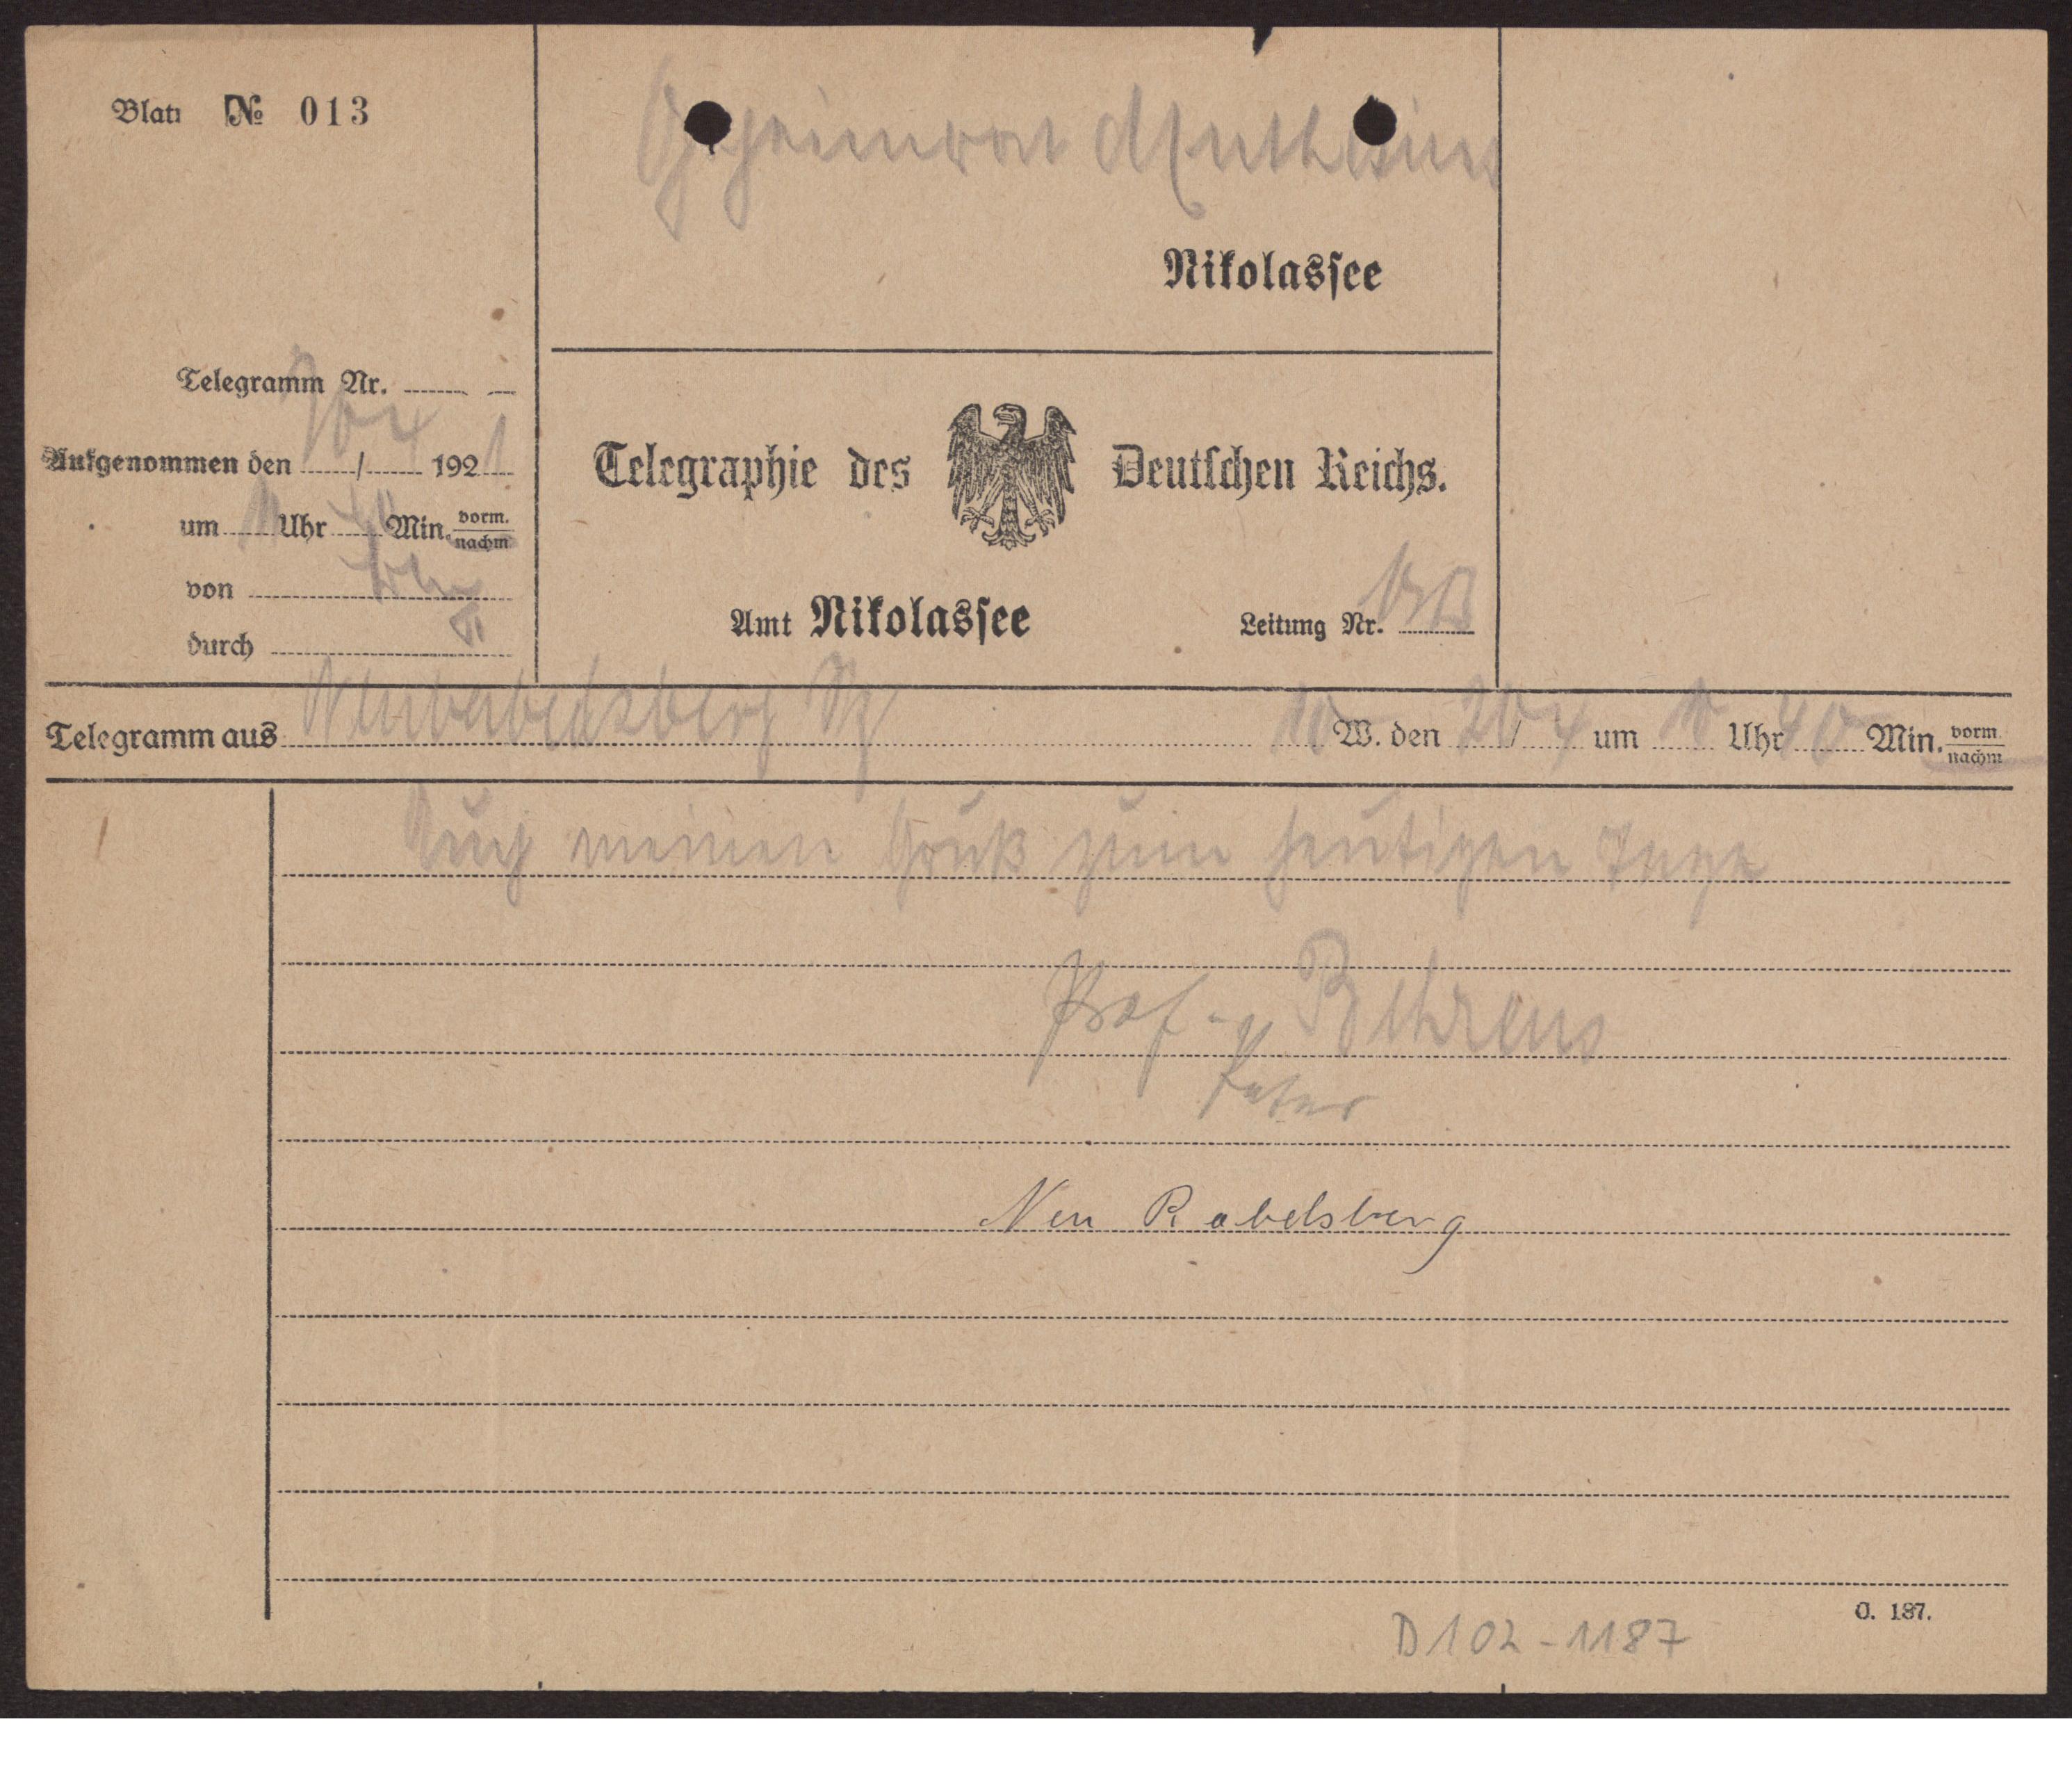 Blatt № 013
Geheimrat Muthesius
Nikolassee
Telegramm Nr.
Aufgenommen den 20/4 1921
um Uhr Min. vorm.
nachm
von
durch
Telegraphie des Deutschen Reichs.
Amt Nikolassee
Leitung Nr.
Telegramm aus Neubabelsberg 10 W. den 20/4 um Uhr 40 Min. vorm.
nachm
Auch meinen Gruß zum heutigen Tage
Prof. Behrens
Peter
Neu Babelsberg
C. 187.
D102-1187